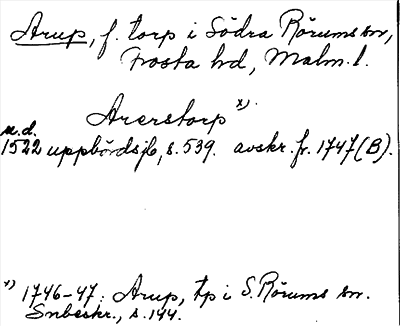 Arup, f. torp i Södra Rörums sn,
Frosta hd, Malm. l.
Arerstorp x)
u.d.
1522 uppbördsjb, s. 539. avskr. fr. 1747 (B).
x) 1746-47: Arup, tp i S. Rörums sn.
Snbeskr., s. 144.